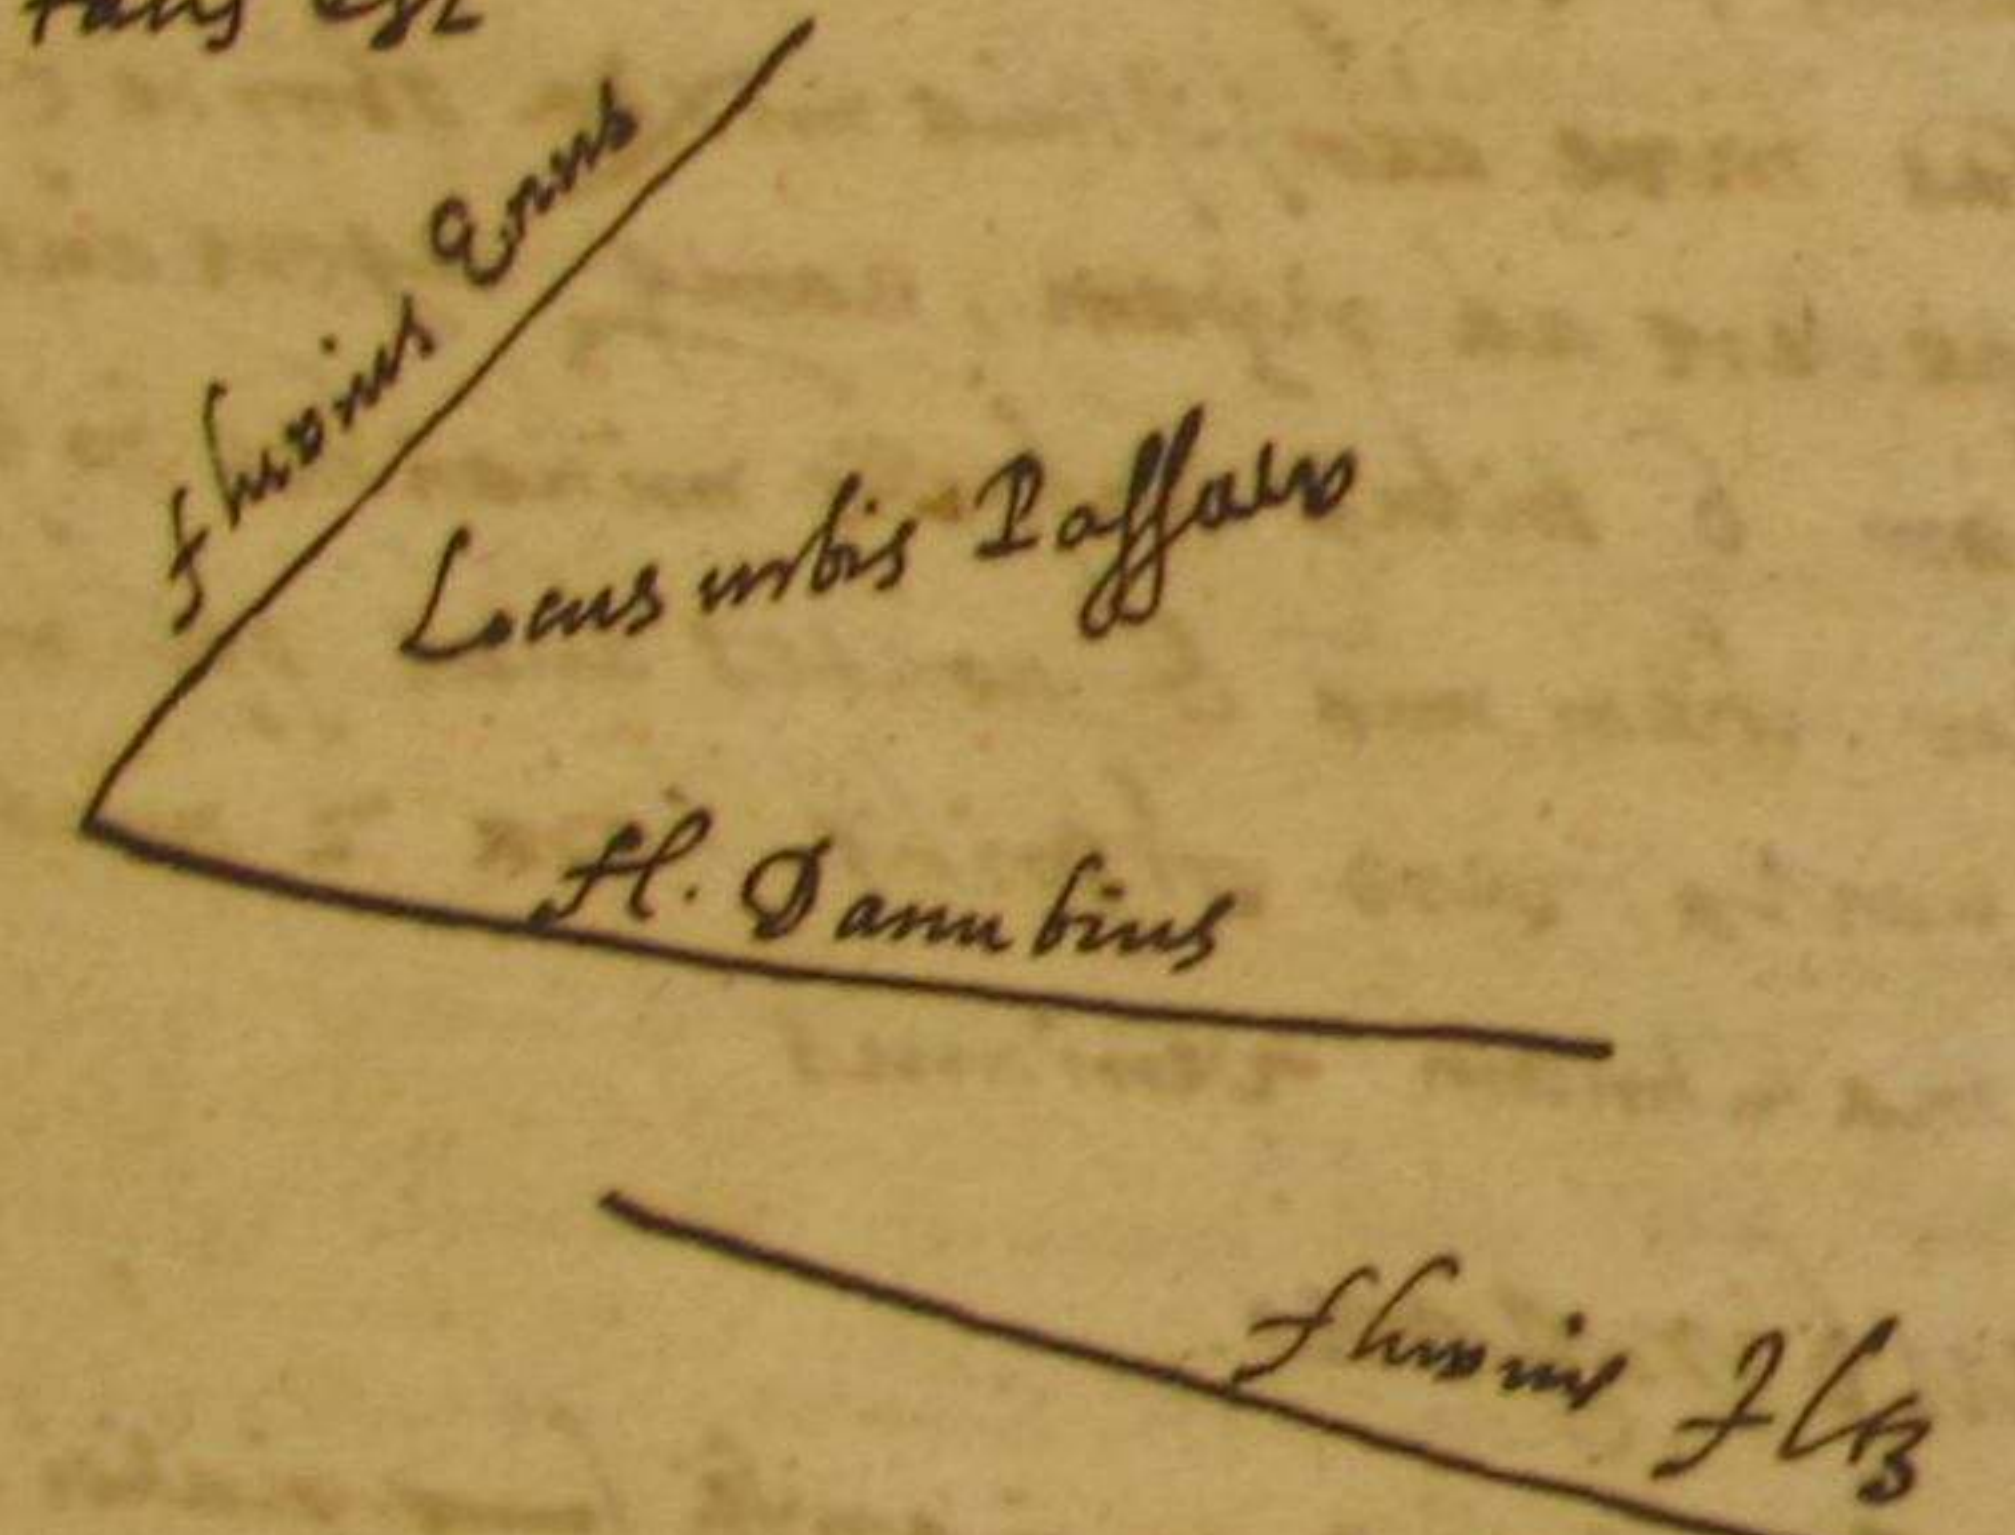 talis est
fluvius Enus
Locus urbis Passaw
fl. Danubius
fluvius Iltz